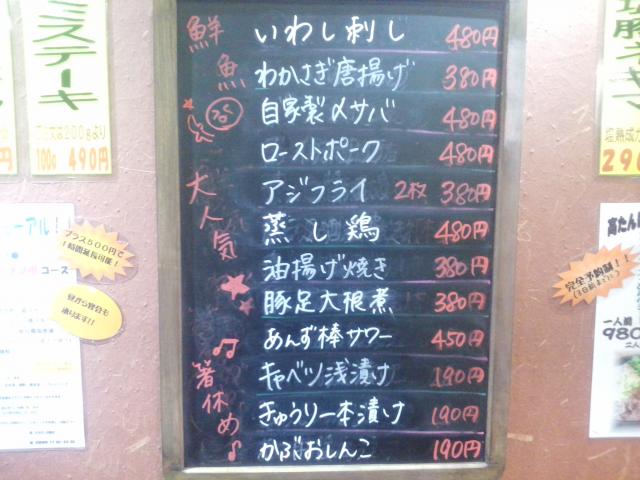 ミステーキ
ご注文は200gより
100g 490円
鮮魚
なく
大人気
箸休め♪
いわし刺し 480円
わかさぎ唐揚げ 380円
自家製〆サバ 480円
ローストポーク 480円
アジフライ 2枚 380円
蒸し鶏 480円
油揚げ焼き 380円
豚足大根煮 380円
あんず棒サワー 450円
キャベツ浅漬け 190円
きゅうり一本漬け 190円
かぶおしんこ 190円
ューアル!
プラス500円で
1時間延長可能!
コース
昼から宴会も
承ります!!
塩熟成
290
完全予約制!!
一人鍋
980